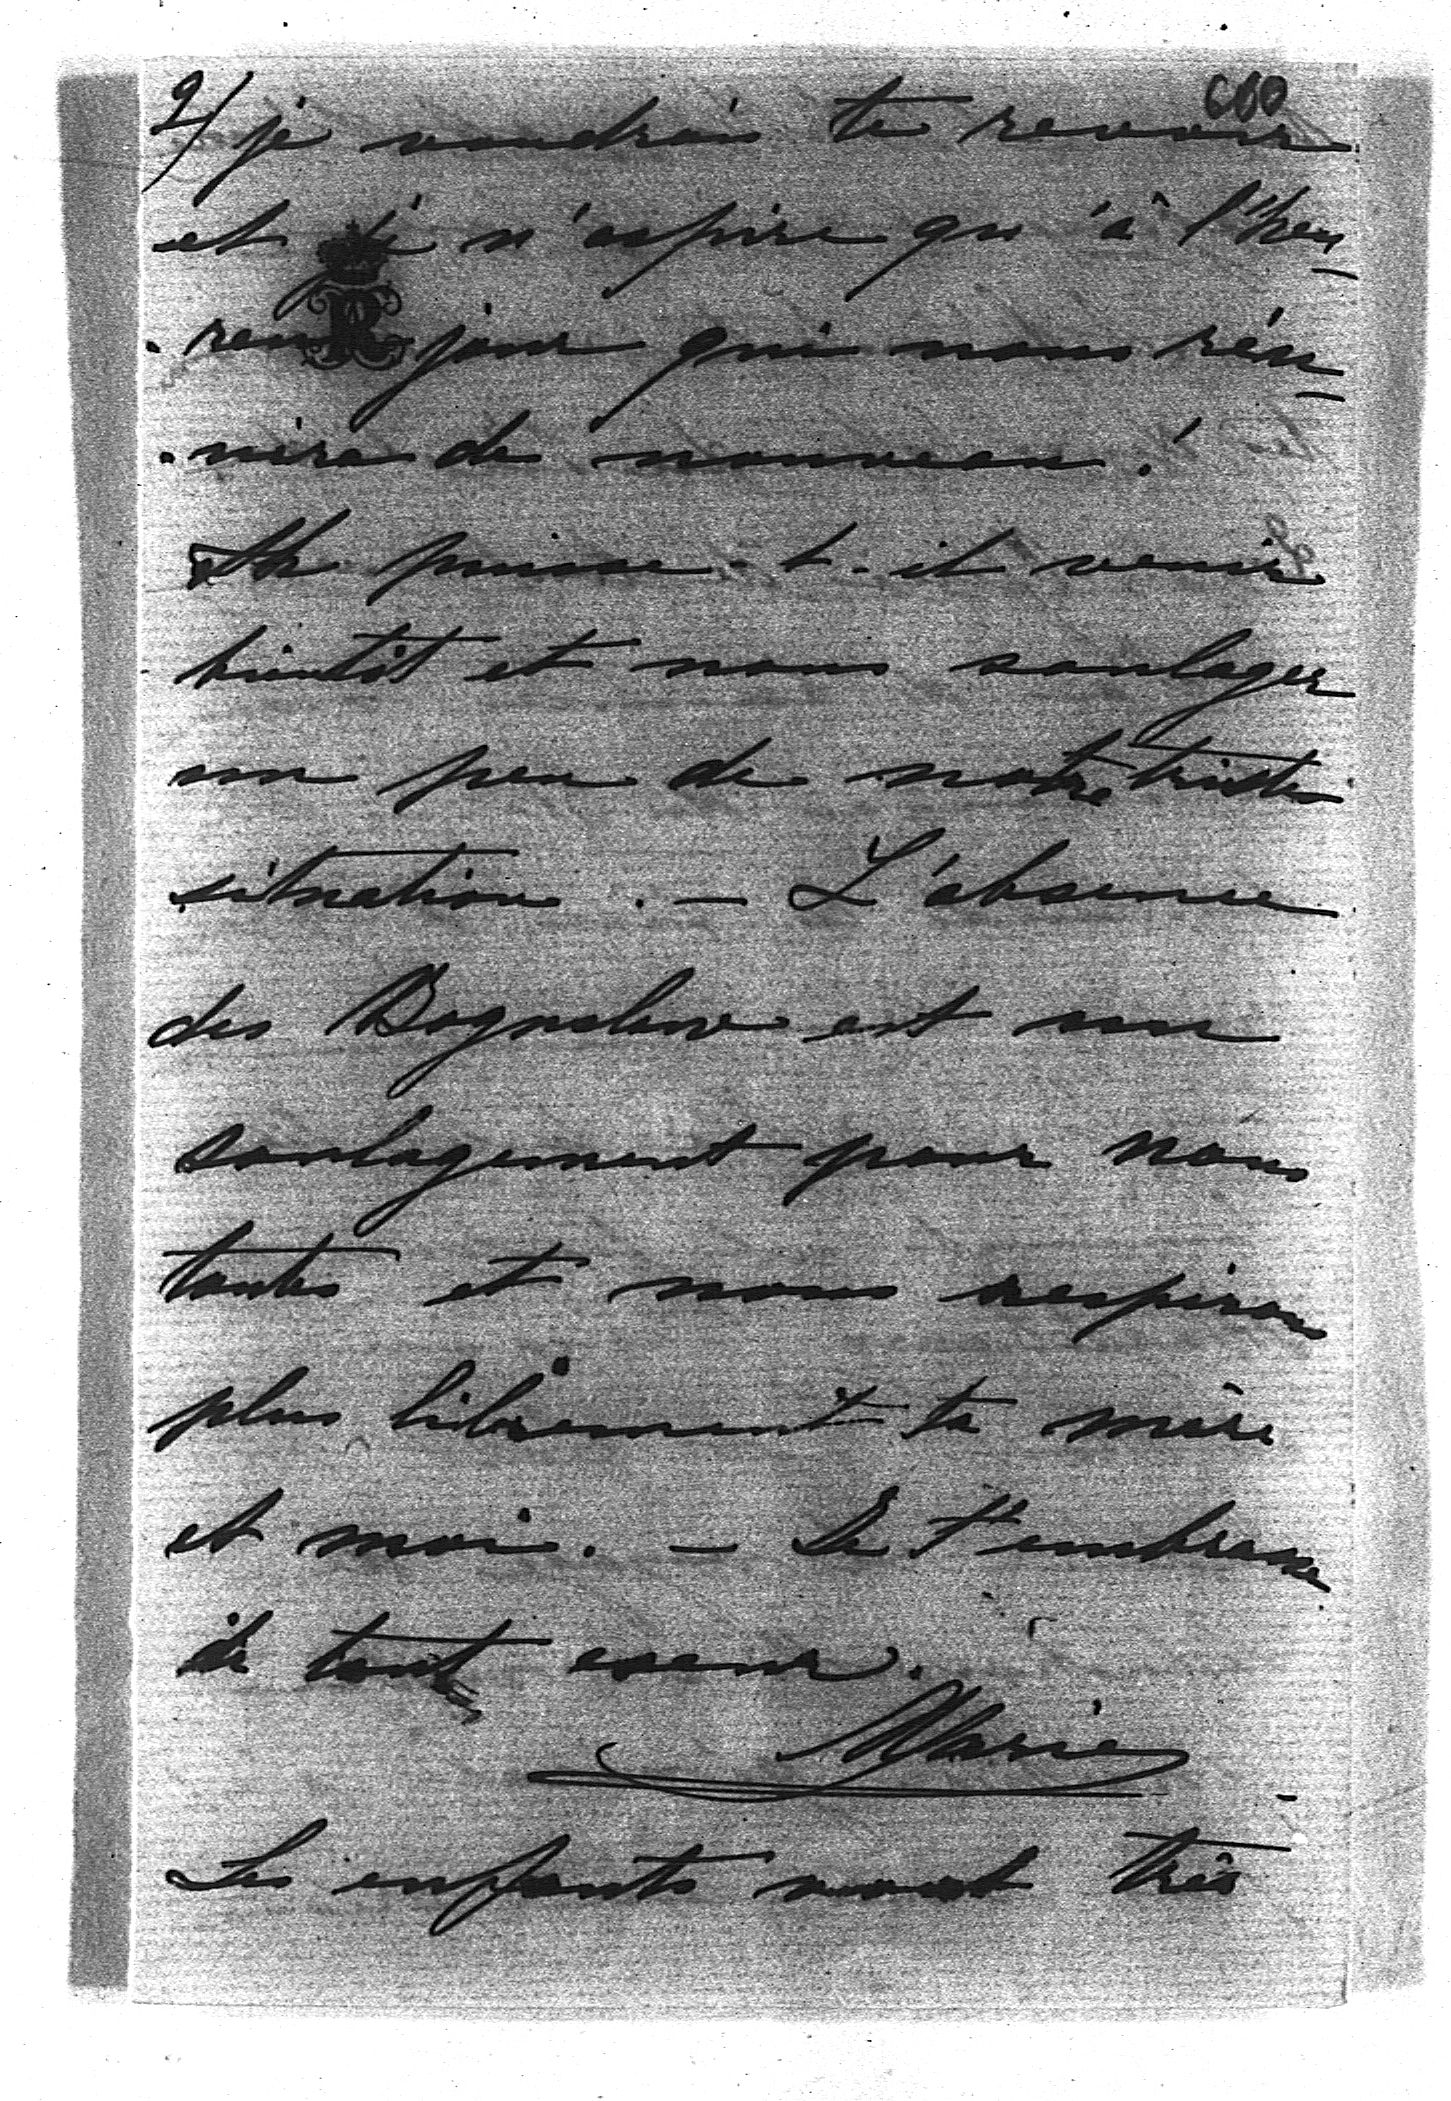 2/ je voudrais te revoir 660
et je n'aspire qu'à l'heu
reux jour qui nous réu
nira de nouveau!
Ah puisse-t-il venir
bientôt et nous soulager
un peu de notre triste
situation. – L'absence
des est un
soulagement pour nous
toutes et nous respirons
plus librement ta mère
et moi. – Je t'embrasse
de tout coeur.
Marie
Les enfants vont très